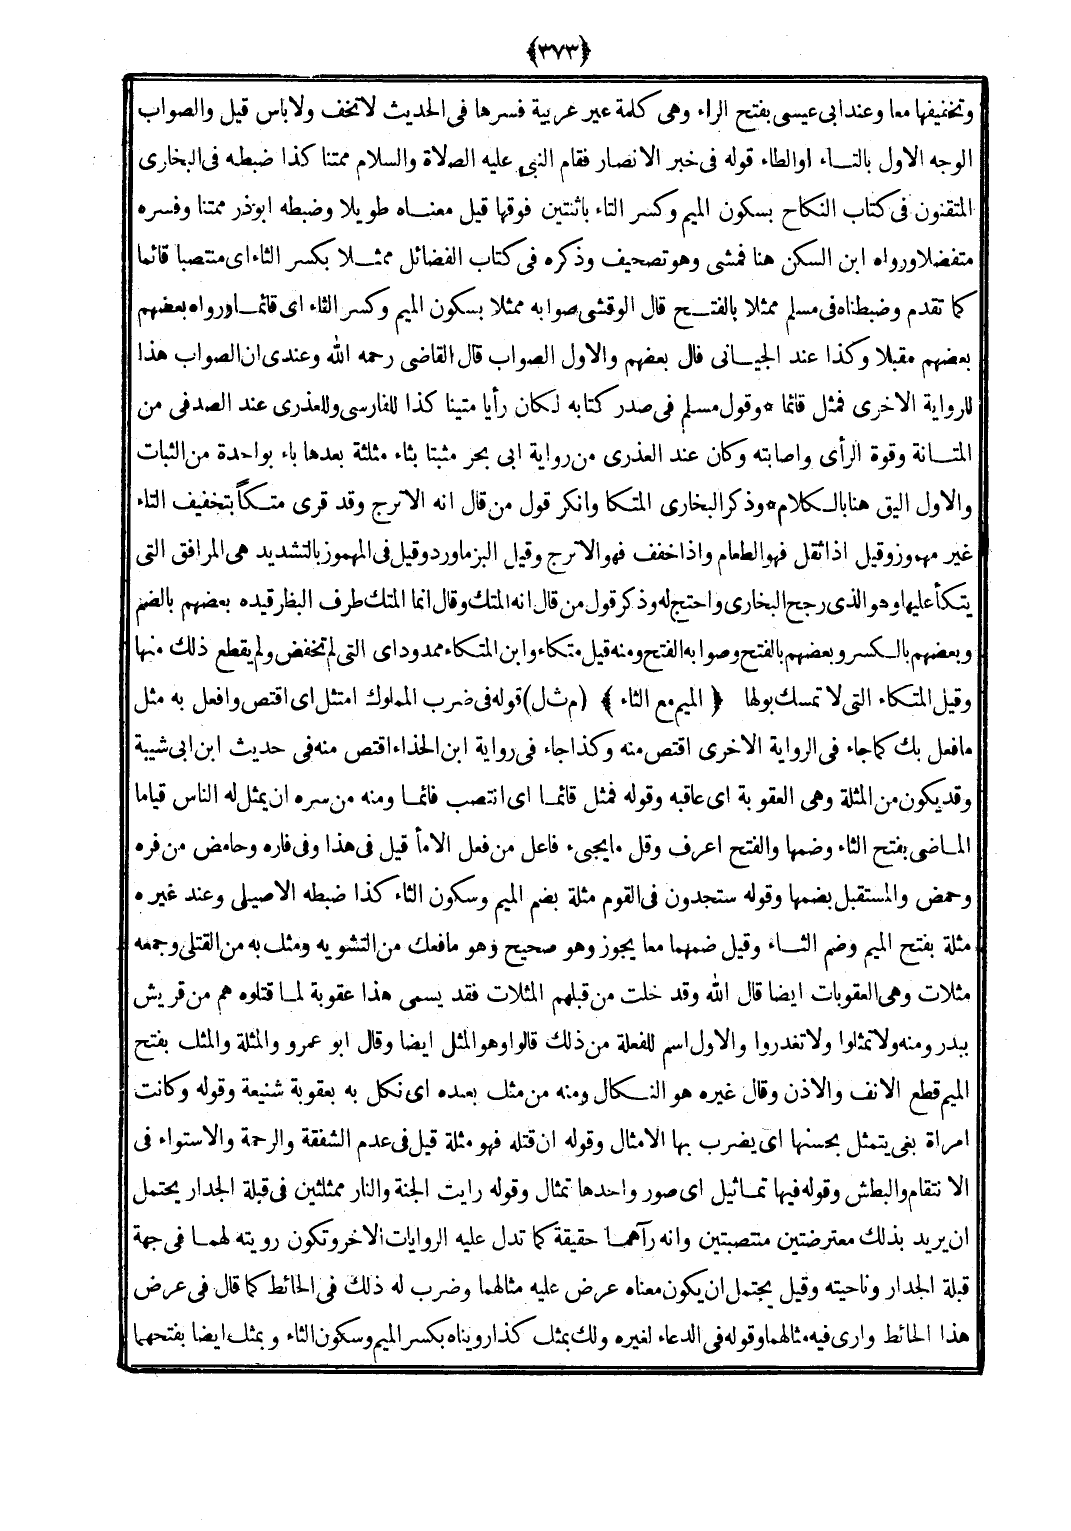 ﴿٣٧٣﴾
وتخفيفها معا وعند ابى عيسى بفتح الراء وهى كلمة غير عربية فسرها فى الحديث لا تخف ولا باس قيل والصواب
الوجه الاول بالتـــاء اوالطاء قوله فى خبر الانصار فقام النبى عليه الصلاة والسلام ممتنا كذا ضبطه فى البخارى
المتقنون فى كتاب النكاح بسكون الميم وكسر التاء باثنتين فوقها قيل معنـــاه طويلا وضبطه ابوذر ممتنا وفسره
متفضلا ورواه ابن السكن هنا فمشى وهو تصحيف وذكره فى كتاب الفضائل ممثـــلا بكسر الثاء اى منتصبا قائما
كما تقدم وضبطناه فى مسلم ممثلا بالفتـــح قال الوقشى صوابه ممثلا بسكون الميم وكسر الثاء اى قائمـــا ورواه بعضهم
بعضهم مقبلا وكذا عند الجيـــانى قال بعضهم والاول الصواب قال القاضى رحمه الله وعندى ان الصواب هذا
للرواية الاخرى فمثل قائما * وقول مسلم فى صدر كتابه لكان رأيا متينا كذا للفارسى وللعذرى عند الصدفى من
المتـــانة وقوة الرأى واصابته وكان عند العذرى من رواية ابى بحر مثبتا بثاء مثلثة بعدها باء بواحدة من الثبات
والاول اليق هنا بالـــكلام * وذكر البخارى المتكا وانكر قول من قال انه الاترج وقد قرى متـــكاً بتخفيف التاء
غير مهموز وقيل اذا ثقل فهو الطعام واذا خفف فهو الاترج وقيل البزماورد وقيل فى المهموز بالتشديد هى المرافق التى
يتكأ عليها وهو الذى رجح البخارى واحتج له وذكر قول من قال انه المتك وقال انما المتك طرف البظر قيده بعضهم بالضم
وبعضهم بالـــكسر وبعضهم بالفتح وصوابه الفتح ومنه قيل متكاء وابن المتكاء ممدود اى التى لم تخفض ولم يقطع ذلك منها
وقيل المتكاء التى لا تمسك بولها ﴿ الميم مع الثاء ﴾ (م ث ل) قوله فى ضرب المملوك امتثل اى اقتص وافعل به مثل
مافعل بك كما جاء فى الرواية الاخرى اقتص منه وكذا جاء فى رواية ابن الحذاء اقتص منه فى حديث ابن ابى شيبة
وقد يكون من المثلة وهى العقوبة اى عاقبه وقوله فمثل قائمـــا اى انتصب قائمـــا ومنه من سره ان يمثل له الناس قياما
المـــاضى بفتح الثاء وضمها والفتح اعرف وقل ما يجىء فاعل من فعل الا مأ قيل فى هذا وفى فاره وحامض من فره
وحمض والمستقبل بضمها وقوله ستجدون فى القوم مثلة بضم الميم وسكون الثاء كذا ضبطه الاصيلى وعند غيره
مثلة بفتح الميم وضم الثـــاء وقيل ضمهما معا يجوز وهو صحيح وهو مافعك من التشويه ومثلـ به من القتلى وجمعه
مثلات وهى العقوبات ايضا قال الله وقد خلت من قبلهم المثلات فقد يسمى هذا عقوبة لمـــا قتلوه هم من قريش
ببدر ومنه ولا تمثلوا ولا تغدروا والاول اسم للفعلة من ذلك قالوا وهو المثل ايضا وقال ابو عمرو والمثلة والمثل بفتح
الميم قطع الانف والاذن وقال غيره هو النـــكال ومنه من مثل بعبده اى نكل به بعقوبة شنيعة وقوله وكانت
امراة بغى يتمثل بحسنها اى يضرب بها الامثال وقوله ان قتله فهو مثلة قيل فى عدم الشفقة والرحمة والاستواء فى
الانتقام والبطش وقوله فيها تمـــاثيل اى صور واحدها تمثال وقوله رايت الجنة والنار ممثلتين فى قبلة الجدار يحتمل
ان يريد بذلك معترضتين منتصبتين وانه رآهمـــا حقيقة كما تدل عليه الروايات الاخر وتكون رويته لهمـــا فى جهة
قبلة الجدار وناحيته وقيل يحتمل ان يكون معناه عرض عليه مثالهما وضرب له ذلك فى الحائط كما قال فى عرض
هذا الحائط وارى فيه مثالهما وقوله فى الدعاء لغيره ولك بمثل كذا رويناه بكسر الميم وسكون الثاء وبمثل ايضا بفتحهما